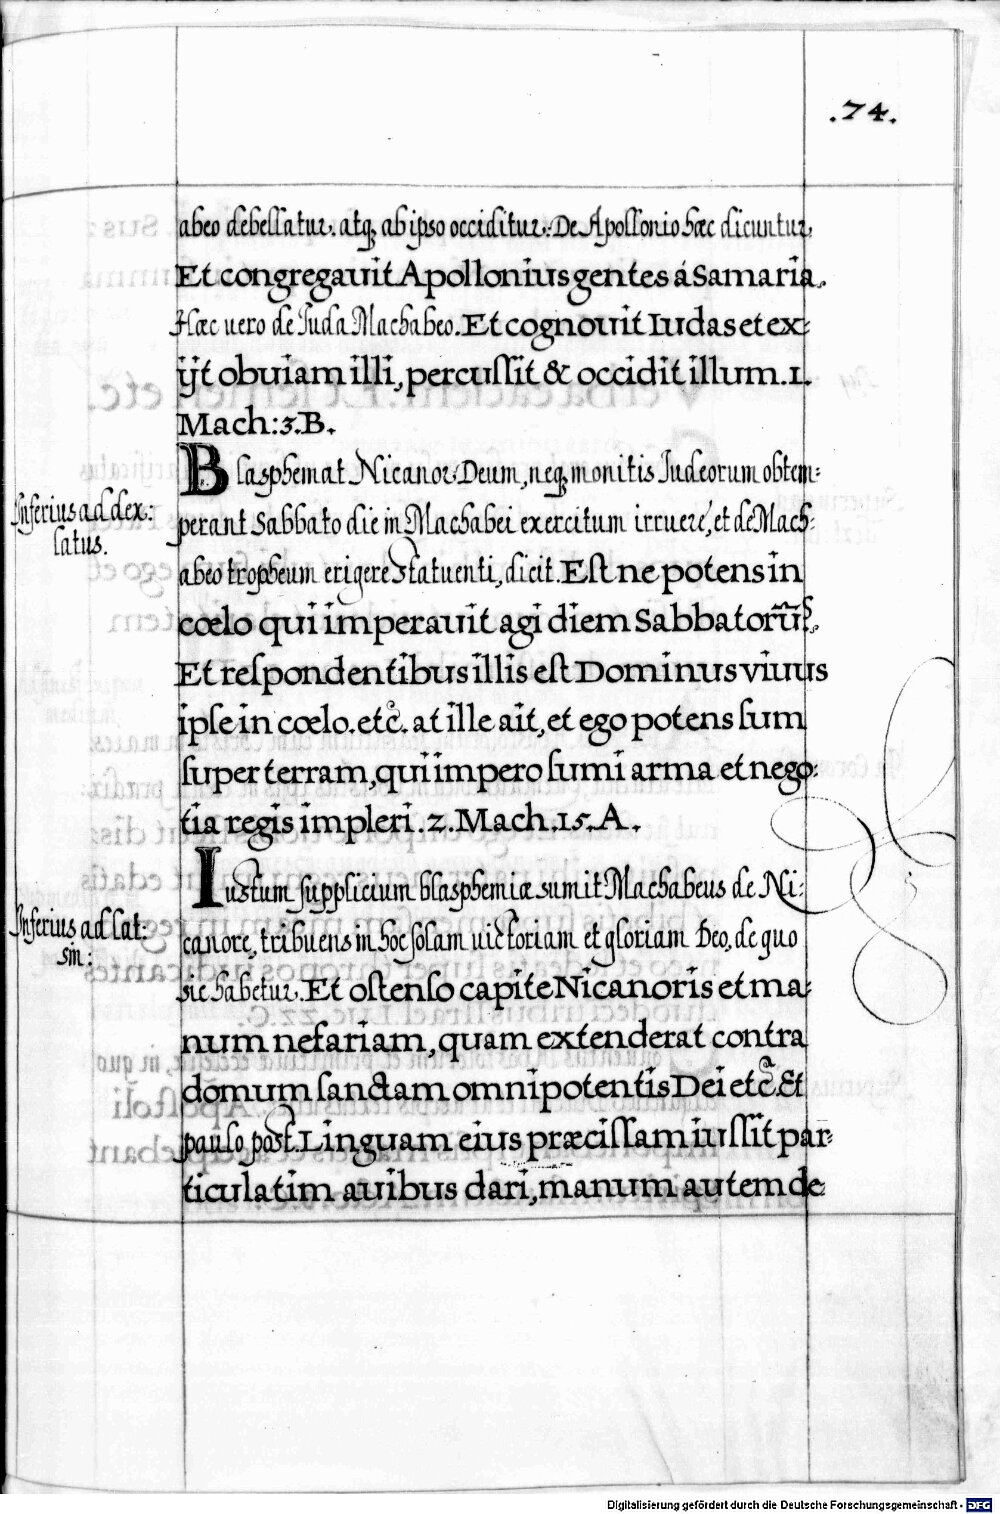 .74.
abeo debellatur. atq; ab ipso occiditur. De Apollonio hæc dicuntur,
Et congregauit Apollonius gentes á Samaria.
Hæc uero de Iuda Machabeo. Et cognouit Iudas et ex-
ijt obuiam illi, percuſſit & occidit illum. 1.
Mach: 3. B.
Blasphemat Nicanor Deum, neq; monitis Iudeorum obtem-
Inferius ad dex:
latus.
perant Sabbato die in Machabei exercitum irruere, et de Mach-
abeo tropheum erigere statuenti, dicit. Eſt ne potens in
cœlo qui imperauit agi diem Sabbatorũ?.
Et reſpondentibus illis eſt Dominus viuus
ipſe in cœlo. etc̃. at ille ait, et ego potens ſum
ſuper terram, qui impero ſumi arma et nego-
tia regis impleri. 2. Mach. 15. A.
Iustum supplicium blasphemiæ sumit Machabeus de Ni-
Inferius ad lat:
sin:
canore, tribuens in hoc solam uictoriam et gloriam Deo, de quo
sic habetur. Et oſtenſo capite Nicanoris et ma-
num nefariam, quam extenderat contra
domum ſanctam omnipotentis Dei etc̃. Et
paulo post. Linguam eius præciſſam iuſſit par-
ticulatim auibus dari, manum autem de
Digitalisierung gefördert durch die Deutsche Forschungsgemeinschaft - DFG